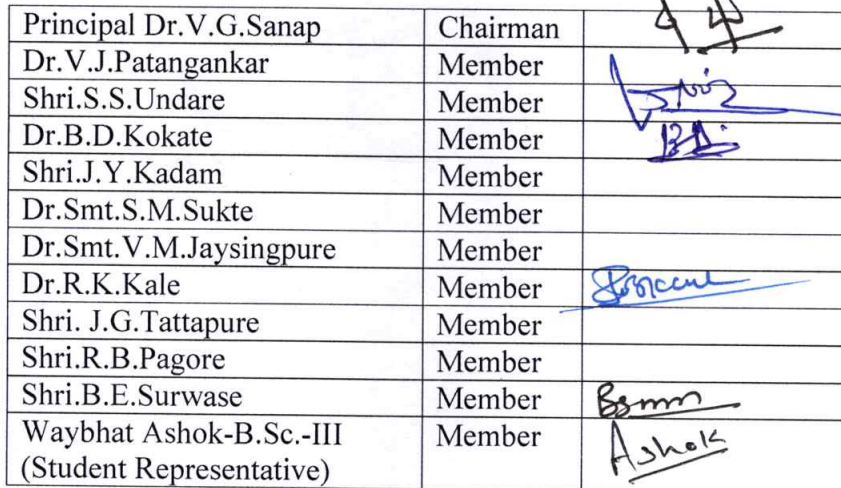 Principal Dr.V.G.Sanap Chairman
Dr.V.J.Patangankar Member
Shri.S.S.Undare Member
Dr.B.D.Kokate Member
Shri.J.Y.Kadam Member
Dr.Smt.S.M.Sukte Member
Dr.Smt.V.M.Jaysingpure Member
Dr.R.K.Kale Member
Shri. J.G.Tattapure Member
Shri.R.B.Pagore Member
Shri.B.E.Surwase Member
Waybhat Ashok-B.Sc.-III Member Ashok
(Student Representative)